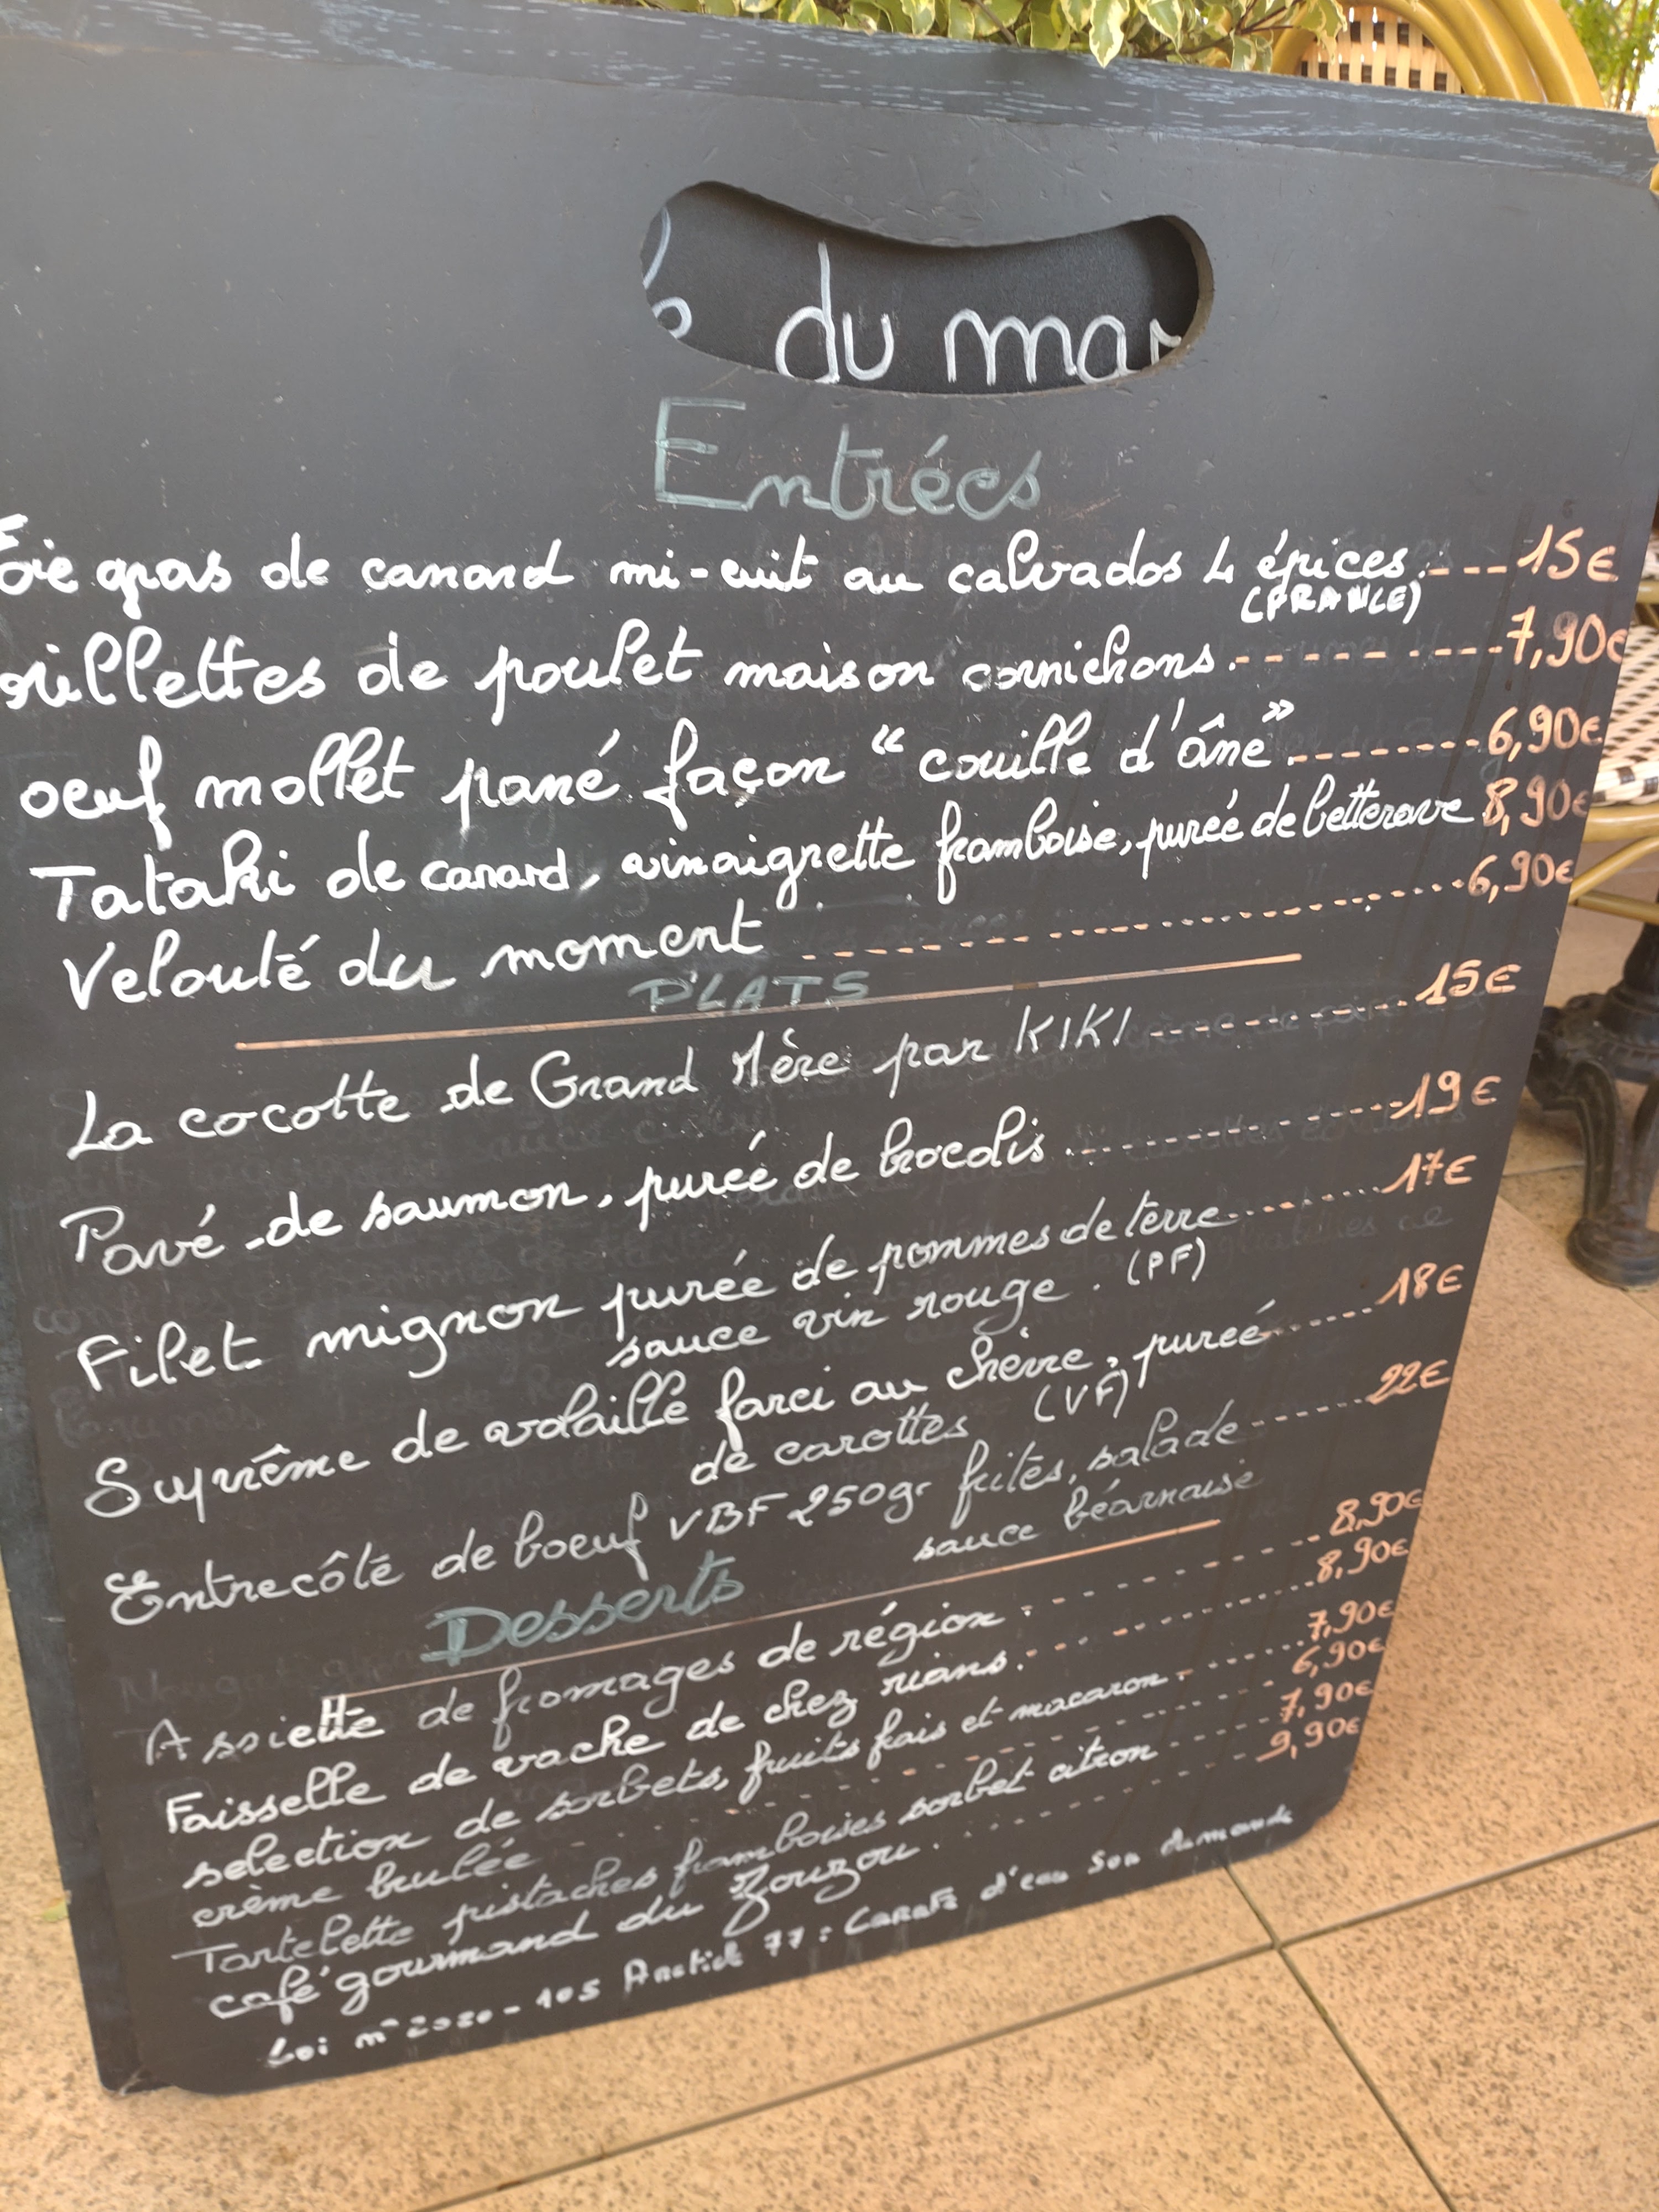 du mar
Entrées
Foie gras de canard mi-cuit au calvados 4 épices.---15€
(FRANCE)
rillettes de poulet maison cornichons.---------7,90€
oeuf mollet pané façon "couille d'âne".--------6,90€
Tataki de canard, vinaigrette framboise, purée de betterave 8,90€
Velouté du moment ------------------6,90€
PLATS
La cocotte de Grand Mère par KIKI ----------15€
Pavé de saumon, purée de brocolis -----------19€
Filet mignon purée de pommes de terre ------17€
sauce vin rouge. (PF)
Suprême de volaille farci au chèvre, pureé ------18€
de carottes (VF)
Entrecôte de boeuf VBF 250gr frites, salade ------22€
sauce béarnaise
Desserts
Assiette de fromages de région ----------8,90€
Faisselle de vache de chez rians.----------8,90€
selection de sorbets, fruits frais et macaron.------7,90€
crème brulée ----------6,90€
Tartelette pistaches framboises sorbet citron ------7,90€
café gourmand du Zouzou. ----------9,90€
Loi n° 2020-105 Article 77 : Carafe d'eau Sur demande